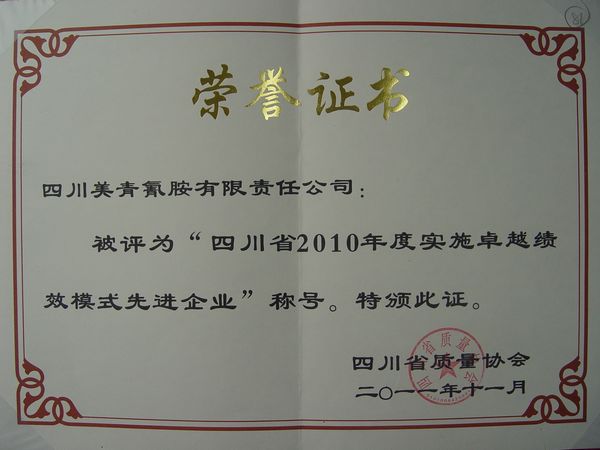 81
荣誉证书
四川美青氰胺有限责任公司：
被评为“四川省2010年度实施卓越绩
效模式先进企业”称号。特颁此证。
四川省质量协会
二〇一一年十一月
四川省质量协会